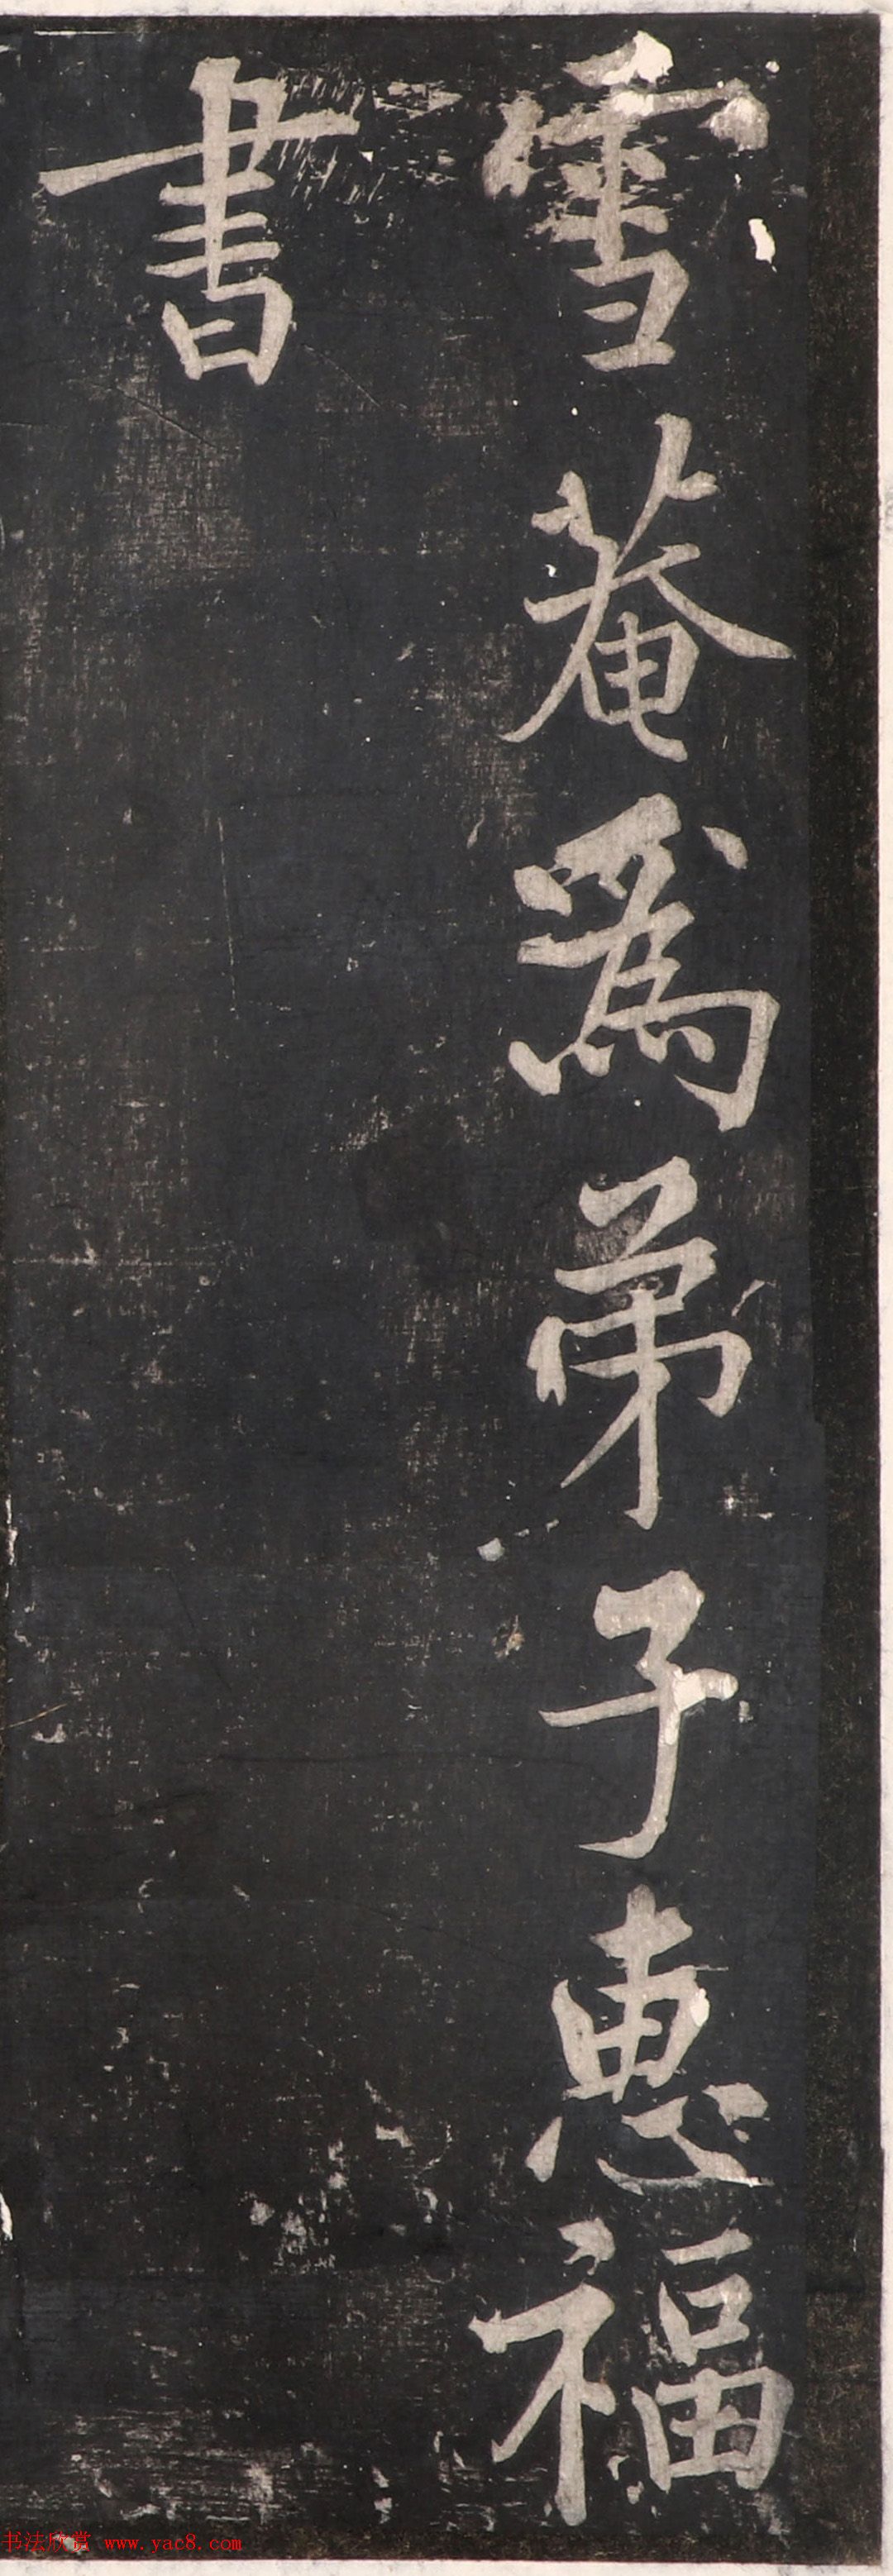 雪菴爲弟子惠福
書
书法欣赏 www.yac8.com